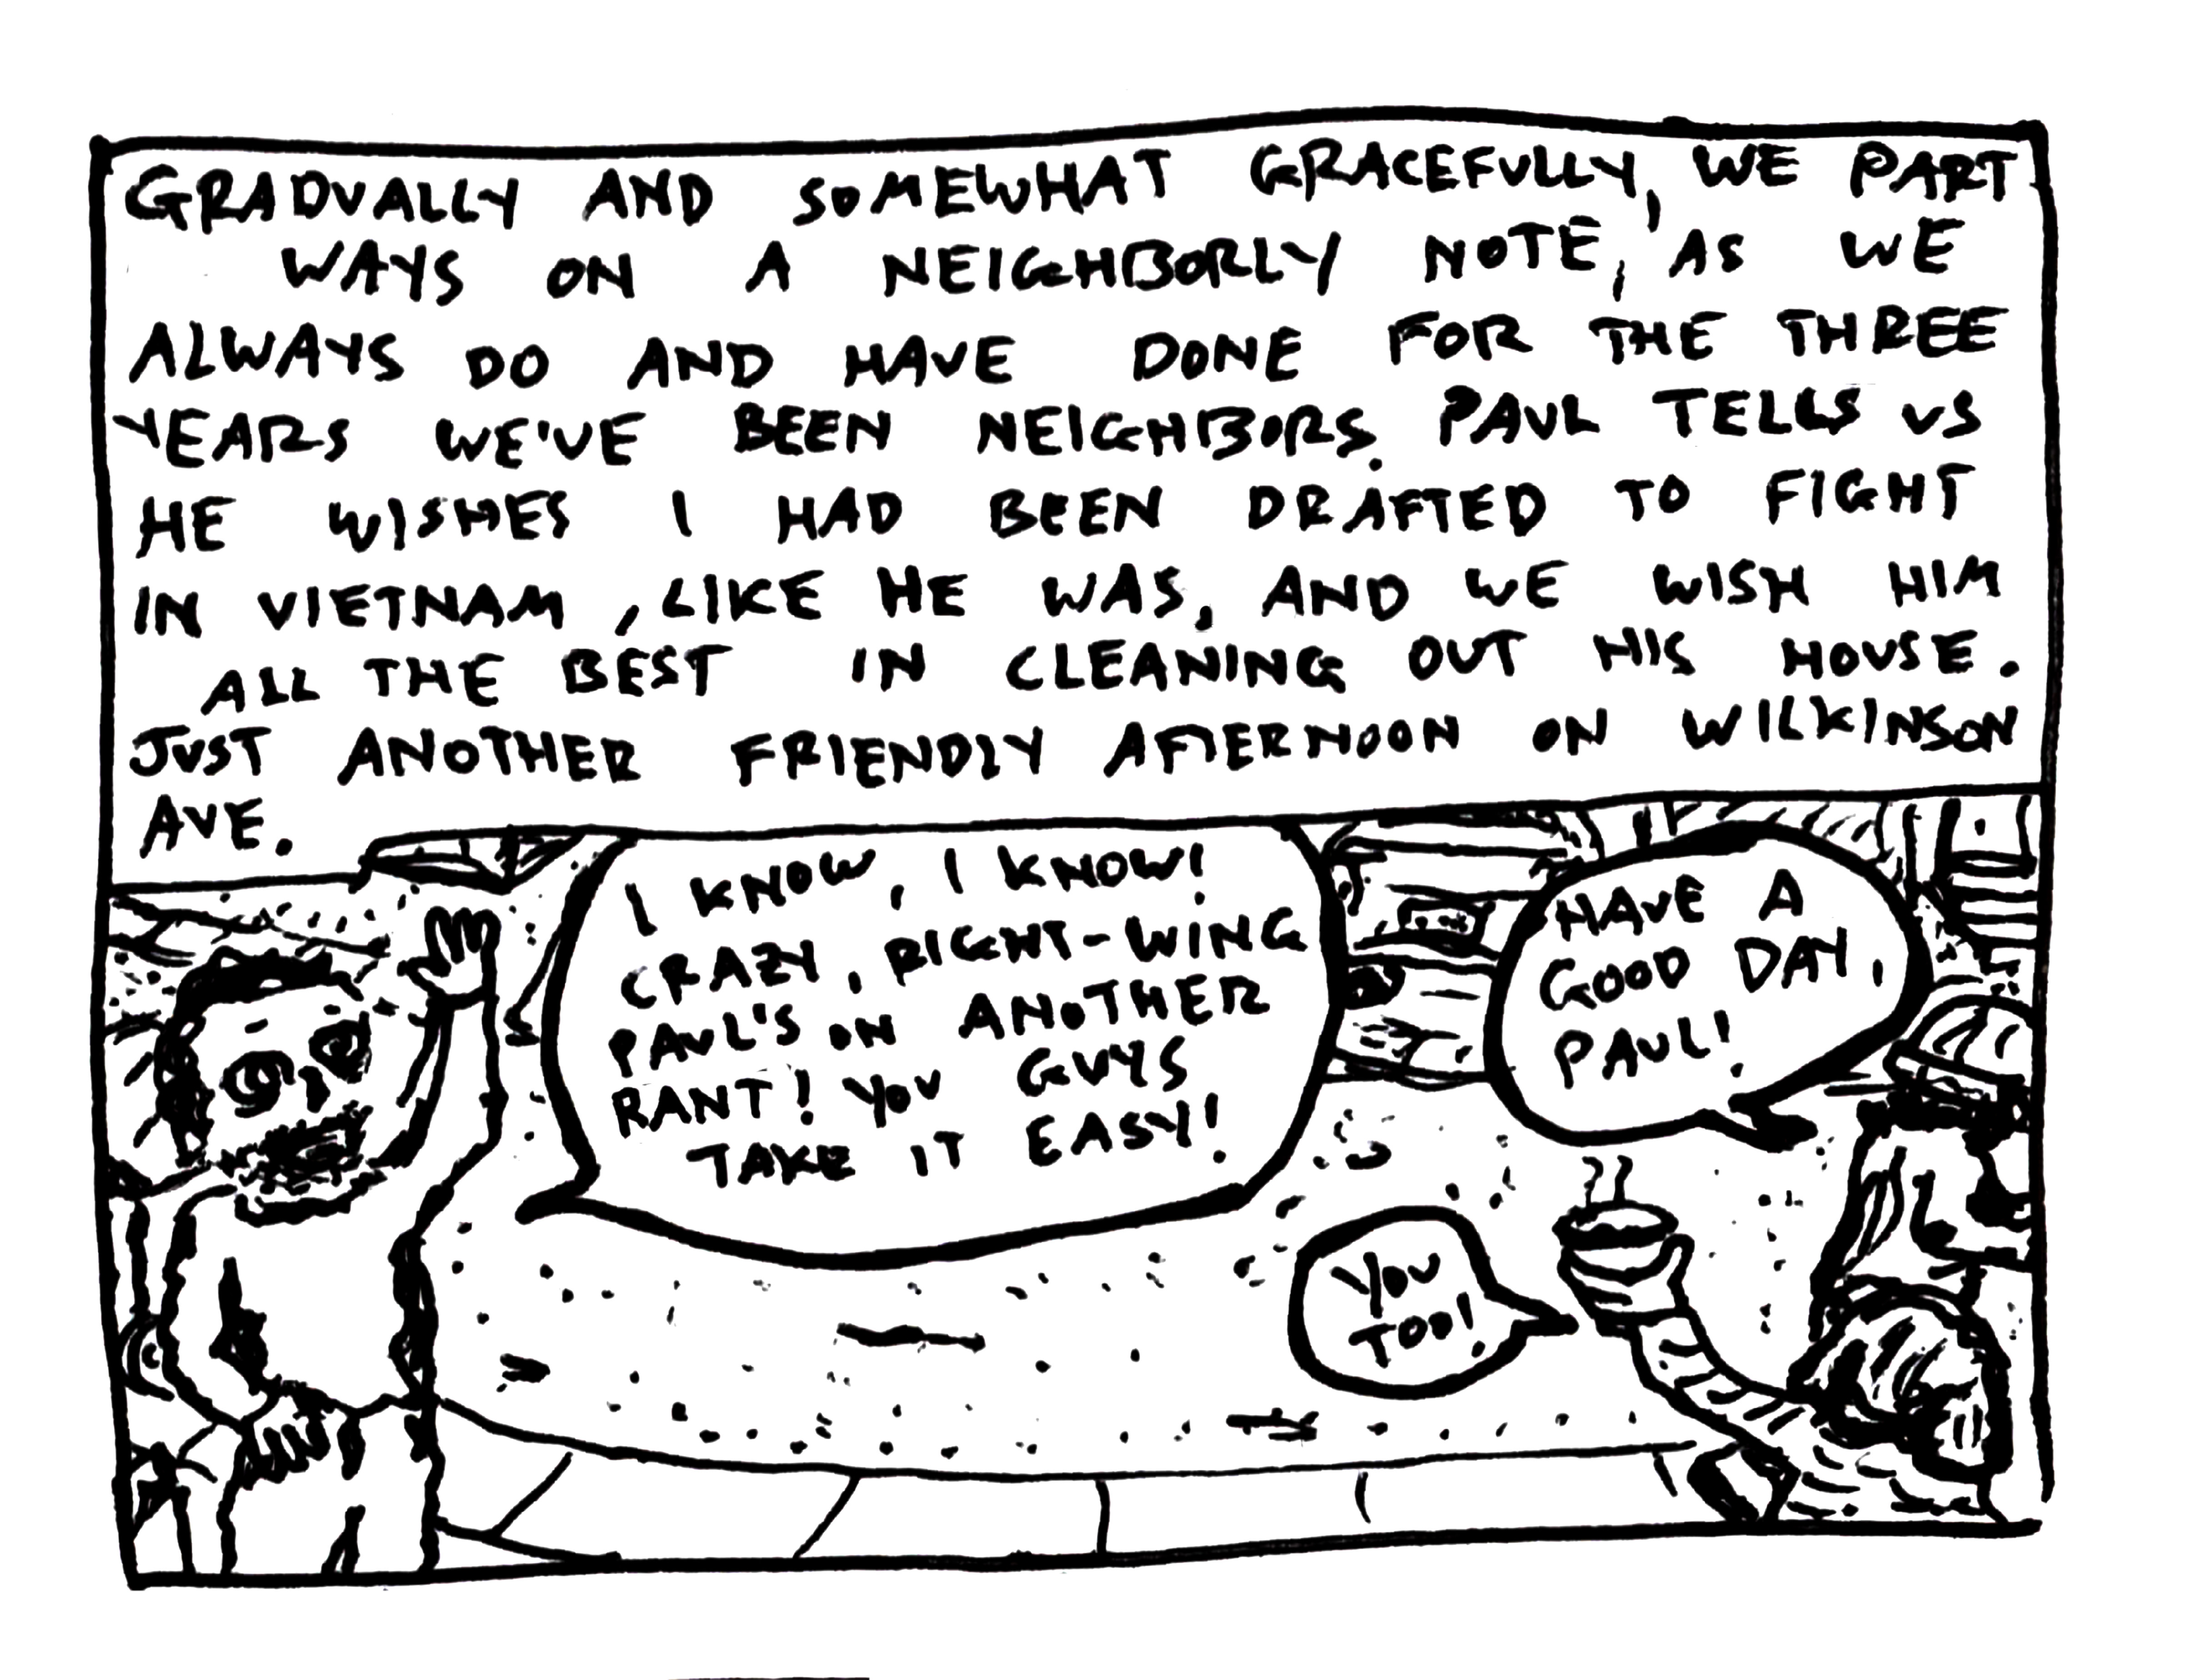 GRADUALLY AND SOMEWHAT GRACEFULLY, WE PART
WAYS ON A NEIGHBORLY NOTE, AS WE
ALWAYS DO AND HAVE DONE FOR THE THREE
YEARS WE'VE BEEN NEIGHBORS. PAUL TELLS US
HE WISHES I HAD BEEN DRAFTED TO FIGHT
IN VIETNAM, LIKE HE WAS, AND WE WISH HIM
ALL THE BEST IN CLEANING OUT HIS HOUSE.
JUST ANOTHER FRIENDLY AFTERNOON ON WILKINSON
AVE.
I KNOW, I KNOW!
CRAZY, RIGHT-WING
PAUL'S ON ANOTHER
RANT! YOU GUYS
TAKE IT EASY!
HAVE A
GOOD DAY,
PAUL!
YOU
TOO!